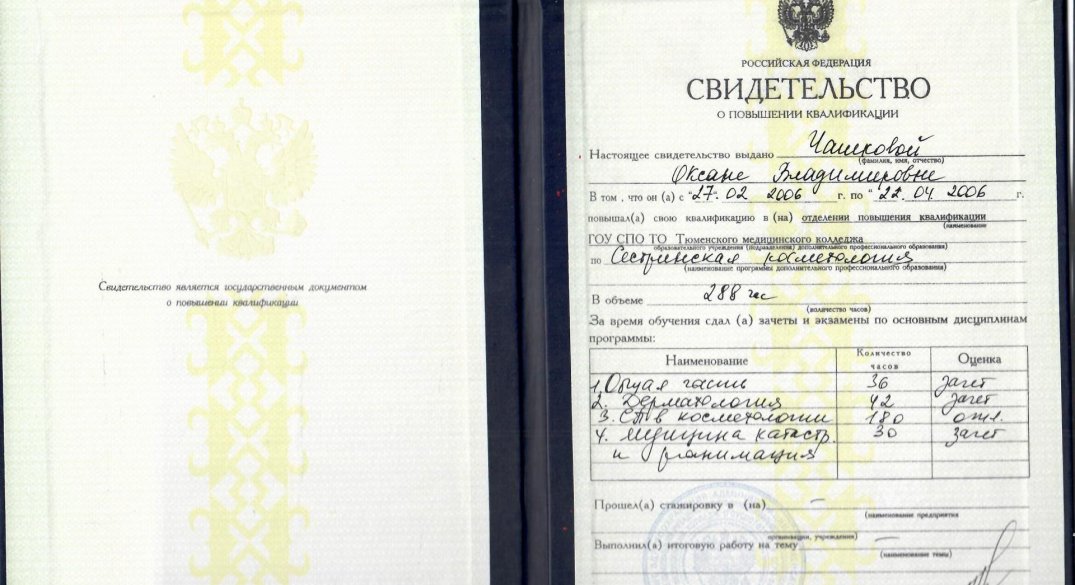 Свидетельство является государственным документом
о повышении квалификации
РОССИЙСКАЯ ФЕДЕРАЦИЯ
СВИДЕТЕЛЬСТВО
О ПОВЫШЕНИИ КВАЛИФИКАЦИИ
Настоящее свидетельство выдано Чашковой
(фамилия, имя, отчество)
Оксане Владимировне
В том, что он (а) с "27" 02 2006 г. по "22" 04 2006 г.
повышал(а) свою квалификацию в (на) отделении повышения квалификации
(наименование
ГОУ СПО ТО Тюменского медицинского колледжа
образовательного учреждения (подразделения) дополнительного профессионального образования)
по Сестринская косметология
(наименование программы дополнительного профессионального образования)
В объеме 288 час
(количество часов)
За время обучения сдал (а) зачеты и экзамены по основным дисциплинам
программы:
Наименование Количество часов Оценка
1. Общая часть 36 зачет
2. Дерматология 42 зачет
3. СП в косметологии 180 отл.
4. Медицина катастр. 30 зачет
и реанимация
Прошел(а) стажировку в (на) —
(наименование предприятия
организации, учреждения)
Выполнил(а) итоговую работу на тему —
(наименование темы)